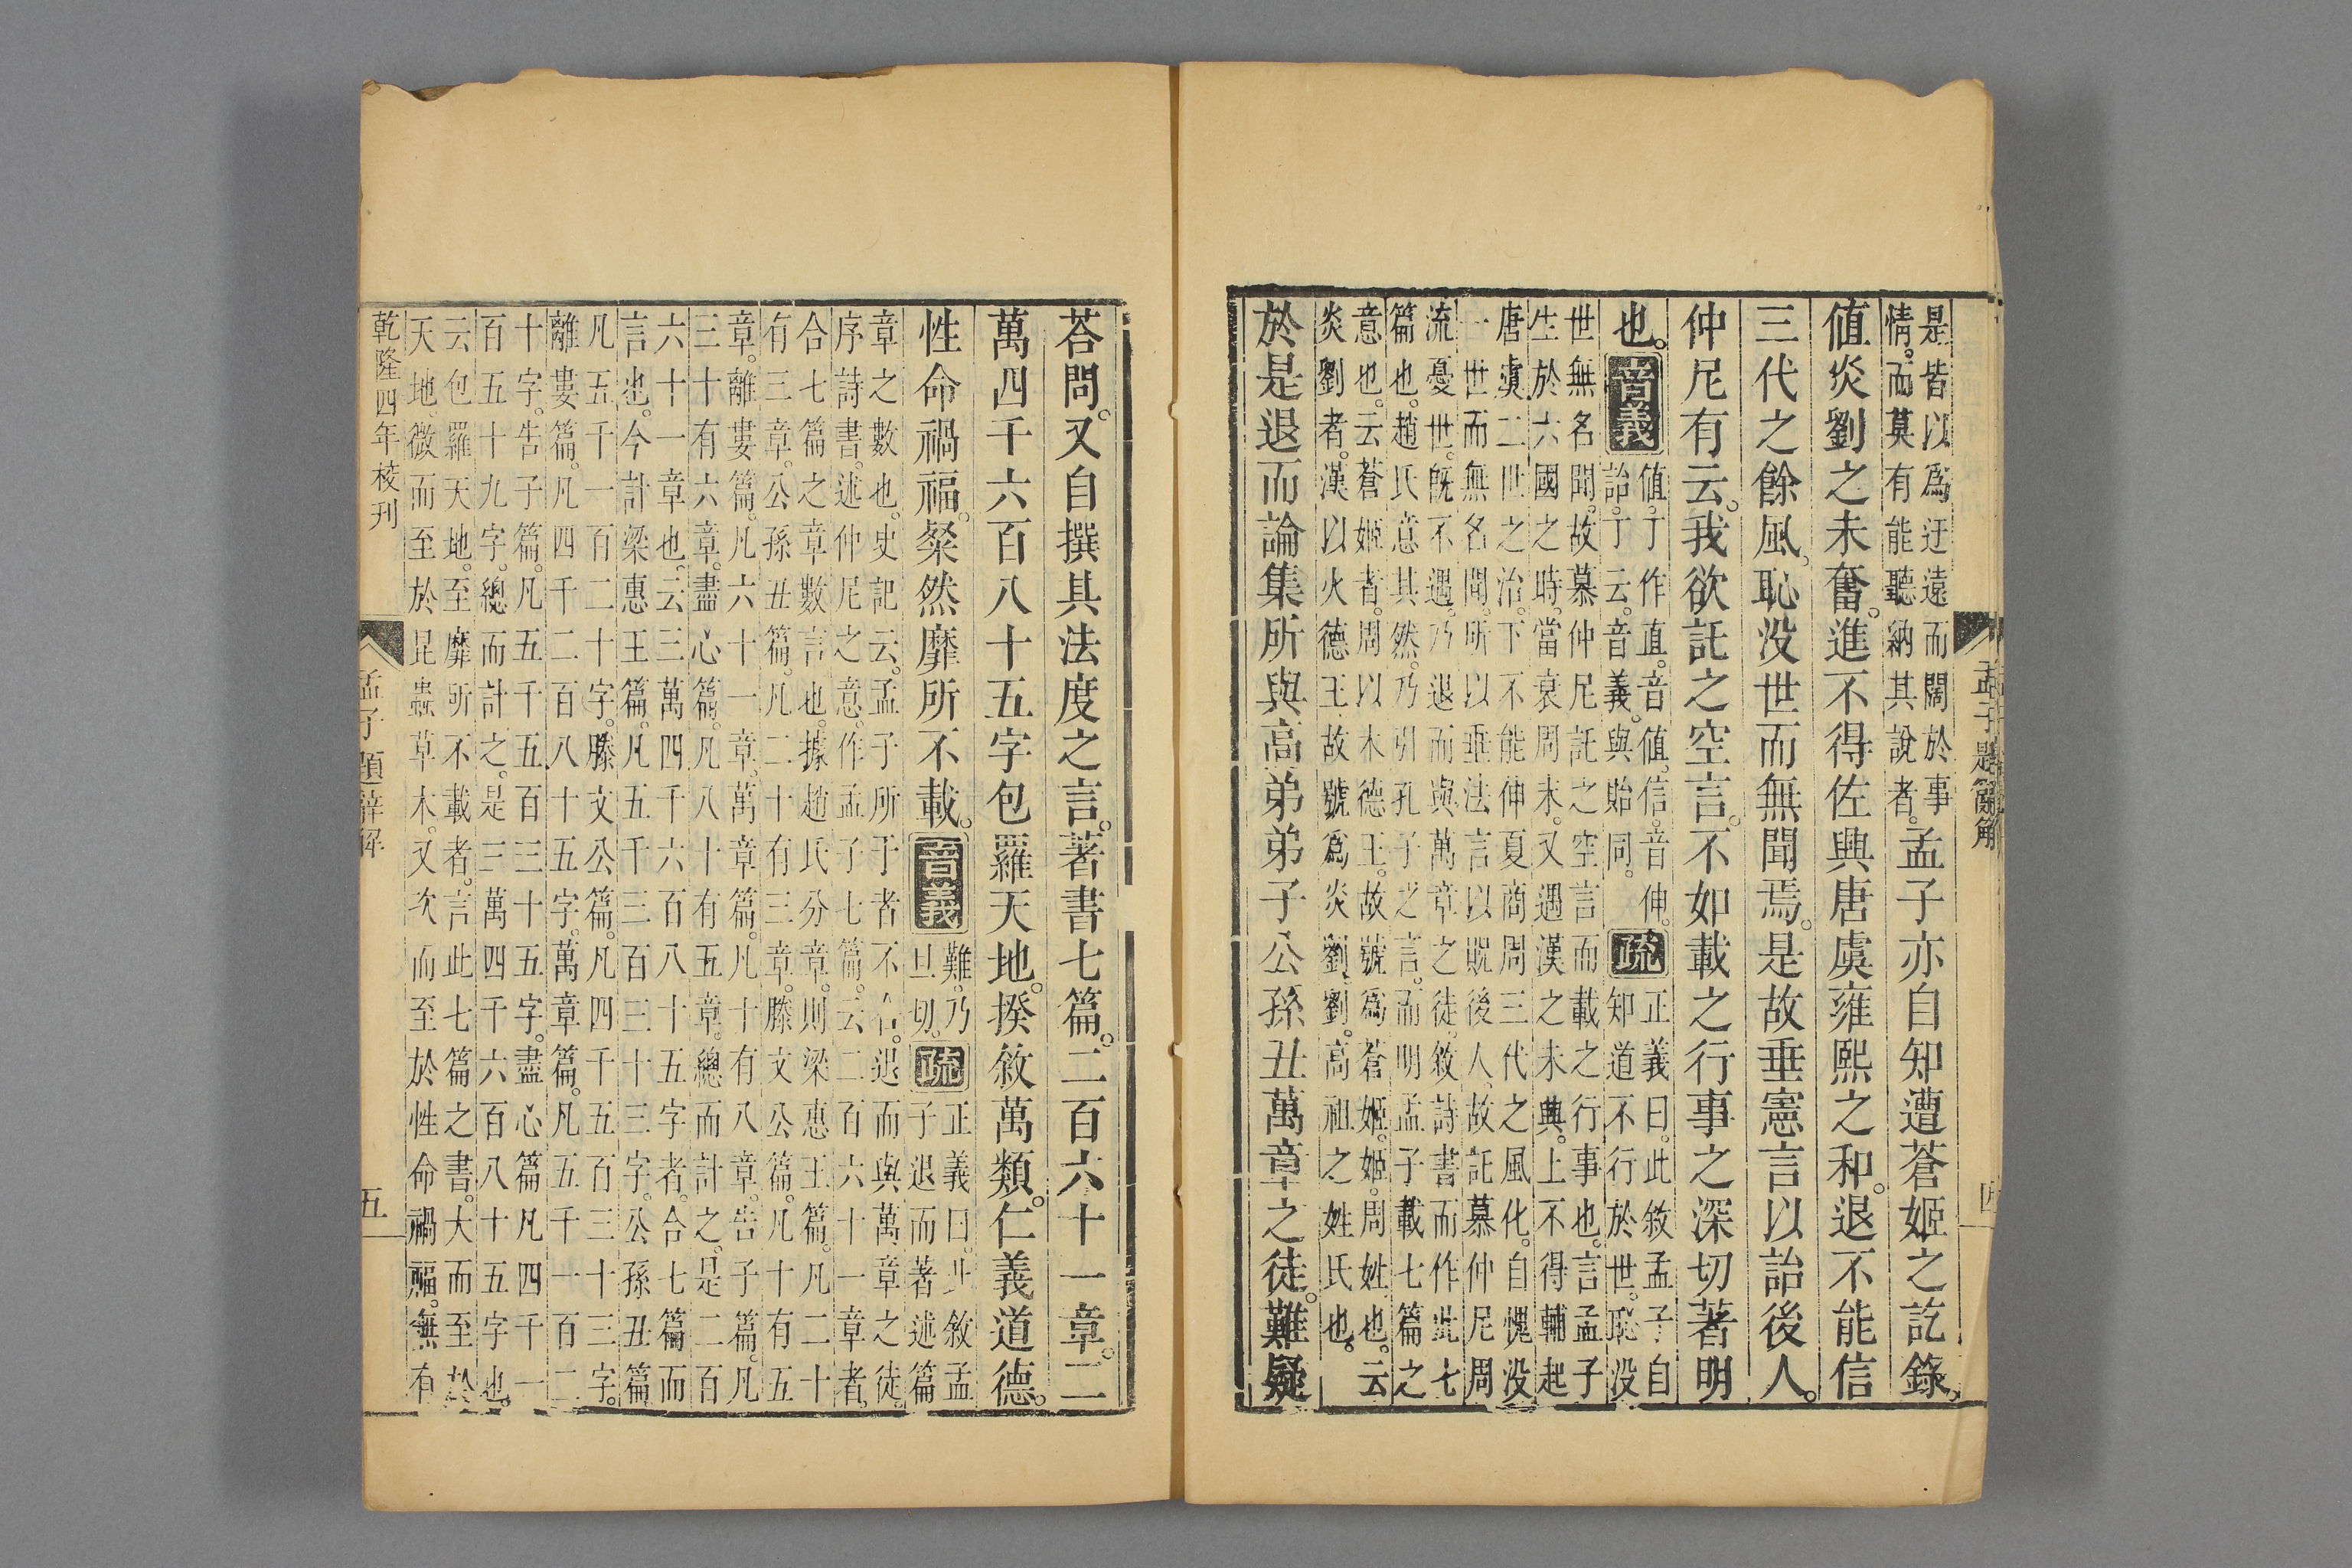 是皆以爲迂遠而闊於事
情。而莫有能聽納其說者。孟子亦自知遭蒼姬之訖錄。
値炎劉之未奮。進不得佐興唐虞雍熙之和。退不能信
三代之餘風。恥没世而無聞焉。是故垂憲言以詒後人。
仲尼有云。我欲託之空言。不如載之行事之深切著明
也。音義値。丁作直。音値。信。音伸。
詒。丁云。音義。與貽同。疏正義曰。此敘孟子自
知道不行於世。恥没
世無名聞。故慕仲尼託之空言而載之行事也。言孟子
生於六國之時。當衰周末。又遇漢之未興。上不得輔起
唐虞二世之治。下不能伸夏商周三代之風化。自愧没
一世而無名聞。所以垂法言以貺後人。故託慕仲尼周
流憂世。旣不遇。乃退而與萬章之徒。敘詩書而作此七
篇也。趙氏意其然。乃引孔子之言。而明孟子載七篇之
意也。云蒼姬者。周以木德王。故號爲蒼姬。姬。周姓也。云
炎劉者。漢以火德王。故號爲炎劉。劉。高祖之姓氏也。
於是退而論集所與高弟弟子公孫丑萬章之徒。難疑
孟子題辭解
四
荅問。又自撰其法度之言。著書七篇。二百六十一章。二
萬四千六百八十五字包羅天地。揆敘萬類。仁義道德。
性命禍福。粲然靡所不載。音義難。乃
旦切。疏正義曰。此敘孟
子退而著述篇
章之數也。史記云。孟子所于者不合。退而與萬章之徒。
序詩書。述仲尼之意。作孟子七篇。云二百六十一章者。
合七篇之章數言也。據趙氏分章。則梁惠王篇。凡二十
有三章。公孫丑篇。凡二十有三章。滕文公篇。凡十有五
章。離婁篇。凡六十一章。萬章篇。凡十有八章。告子篇。凡
三十有六章。盡心篇。凡八十有五章。總而計之。是二百
六十一章也。云三萬四千六百八十五字者。合七篇而
言也。今計梁惠王篇。凡五千三百三十三字。公孫丑篇
凡五千一百二十字。滕文公篇。凡四千五百三十三字。
離婁篇。凡四千二百八十五字。萬章篇。凡五千一百二
十字。告子篇。凡五千五百三十五字。盡心篇凡四千一
百五十九字。總而計之。是三萬四千六百八十五字也。
云包羅天地。至靡所不載者。言此七篇之書。大而至於
天地。微而至於昆蟲草木。又次而至於性命禍福。無有
乾隆四年校刊
孟子題辭解
五